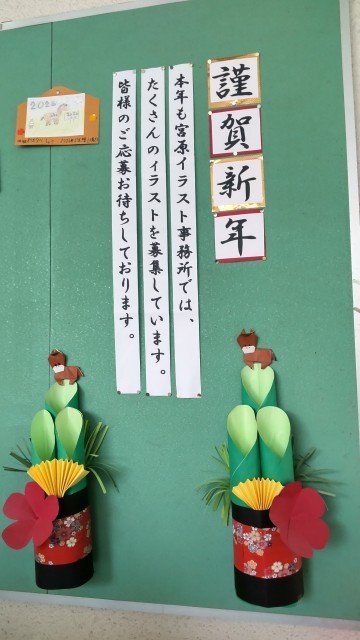 謹賀新年
本年も宮原イラスト事務所では、
たくさんのイラストを募集しています。
皆様のご応募お待ちしております。
2026